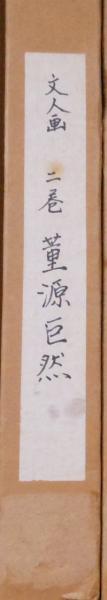 文人画 二巻 董源巨然